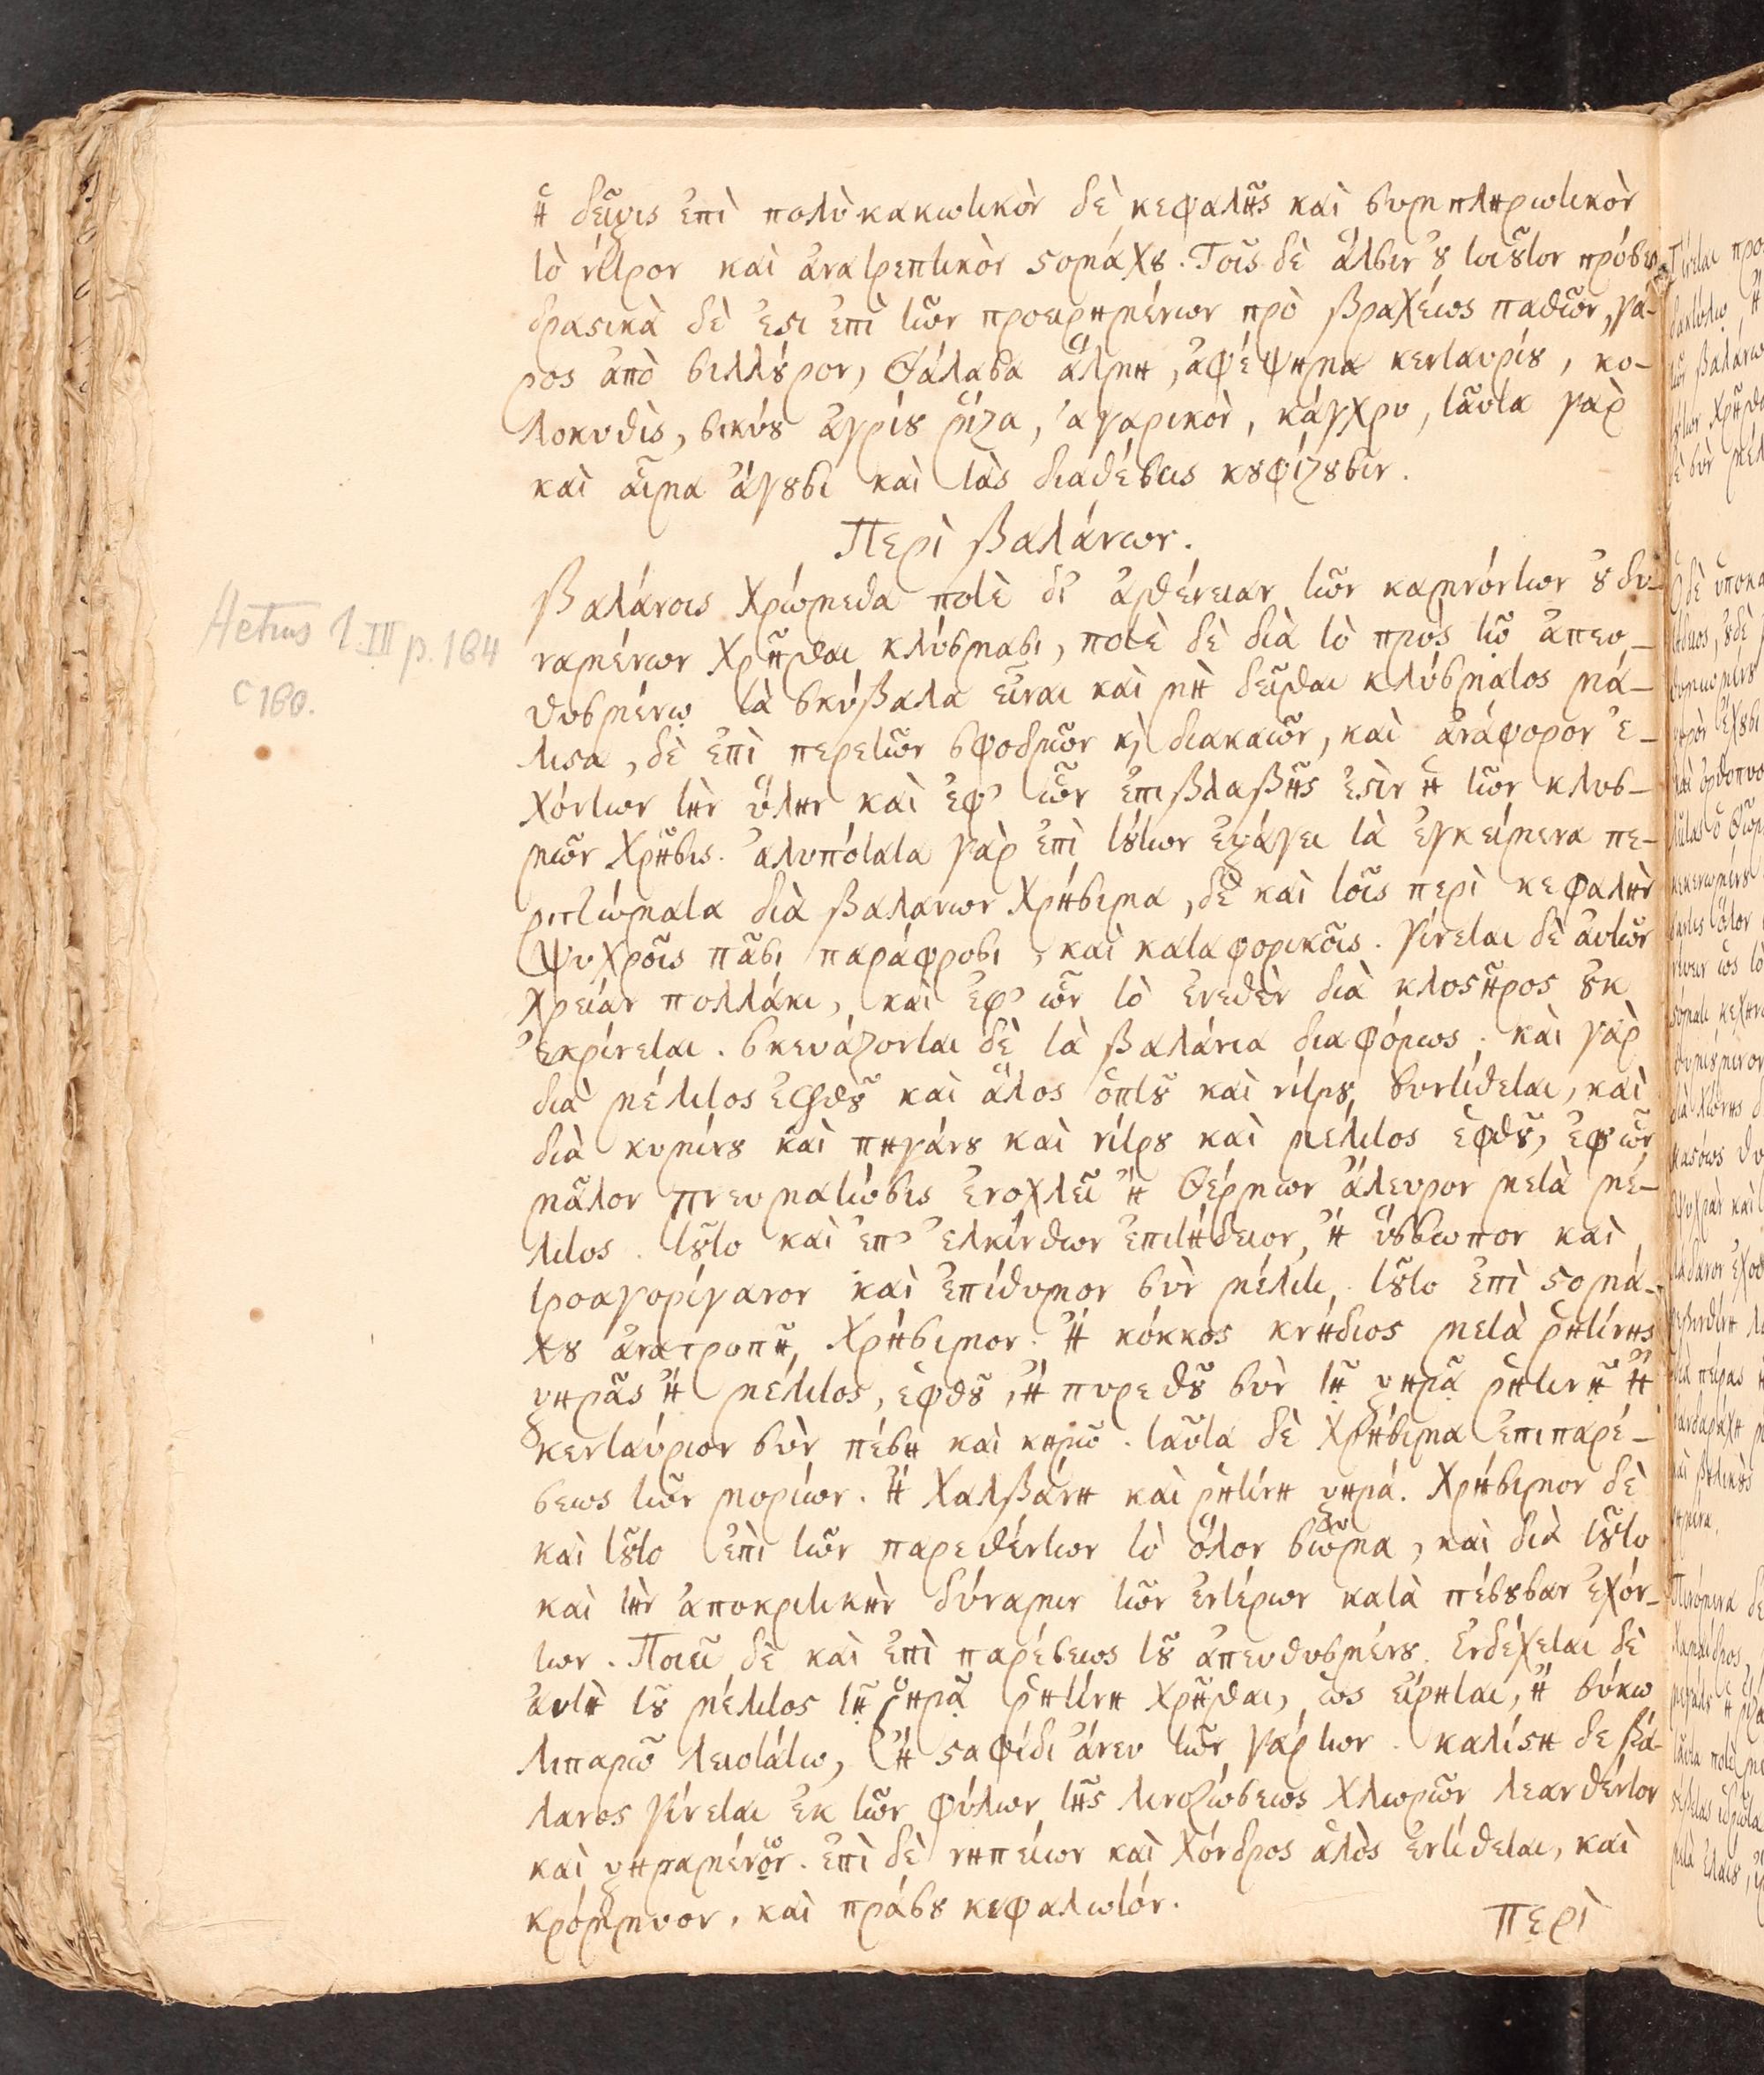 ἡ δεῖξις ἐπὶ πολὺ κακωτικὸν δὲ κεφαλῆς καὶ συμπληρωτικὸν
τὸ νίτρον καὶ ἀνατρεπτικὸν στομάχου. Τοῖς δὲ ἅλσιν οὐ τοιοῦτον πρόσεσ
δραστικὰ δὲ ἐστι ἐπὶ τῶν προειρημένων πρὸ βραχέως παθῶν, γά-
ρος ἀπὸ σιλλούρον, θάλασα ἅλμη, ἀφέψημα κενταυρίου, κο-
λοκυθὶς, σικύου ἀγρίου ῥίζα, ἀγαρικὸν, κάγχρυ, ταῦτα γὰρ
καὶ αἷμα ἄγουσι καὶ τὰς διαθέσεις κουφίζουσιν.
Περὶ βαλάνων.
Βαλάνοις χρώμεθα ποτὲ δι' ἀσθένειαν τῶν καμνόντων οὐ δυ-
ναμένων χρῆσθαι κλύσμασι, ποτὲ δὲ διὰ τὸ πρὸς τῷ ἀπευ-
θυσμένῳ τὰ σκύβαλα εἶναι καὶ μὴ δεῖσθαι κλύσματος μά-
λιστα, δὲ ἐπὶ περετῶν σφοδρῶν κ διακαῶν, καὶ ἀνάφορον ἐ-
χόντων τὴν ὕλην καὶ ἐφ' ὧν ἐπιβλαβῆς ἐστὶν ἡ τῶν κλυσ-
μῶν χρῆσις. ἀλυπότατα γὰρ ἐπὶ τούτων ἐξάγει τὰ ἐγκείμενα πε-
ριττώματα διὰ βαλάνων χρήσιμα, δὲ καὶ τοῖς περὶ κεφαλὴν
ψυχροῖς πᾶσι παράφροσι, καὶ καταφορικοῖς. γίνεται δὲ αὐτῶν
χρείαν πολλάκι, καὶ ἐφ' ὧν τὸ ἐνεθὲν διὰ κλυστῆρος οὐκ
ἐκρίνεται. σκευάζονται δὲ τὰ βαλάνια διαφόρως. καὶ γὰρ
διὰ μέλιτος ἑφθοῦ καὶ ἅλος ὀπτοῦ καὶ νίτρου, συντίθεται, καὶ
διὰ κυμίνου καὶ πηγάνου καὶ νίτρου καὶ μέλιτος ἑφθοῦ, ἐφ' ὧν
μᾶλον πνευματώσις ἐνοχλεῖ ἢ θέρμων ἄλευρον μετὰ μέ-
λιτος. τοῦτο καὶ ἐπ' ἑλμίνθων ἐπιτήδειον, ἢ ὕσσωπον καὶ
τροαγορίγανον καὶ ἐπίθυμον σὺν μέλιτι. τοῦτο ἐπὶ στομά-
χου ἀνατροπῇ χρήσιμον. ἢ κόκκος κνήδιος μετὰ ῥητίνης
ξηρᾶς ἢ μέλιτος, ἑφθοῦ, ἢ πυρεθοῦ σὺν τῇ ξηρᾷ ῥητινῇ ἢ
κενταύριον σὺν πέσῃ καὶ κηρῷ. ταῦτα δὲ χρήσιμα ἐπιπαρέ-
σεως τῶν μορίων. ἢ χαλβάνη καὶ ῥητίνη ξηρά. χρήσιμον δὲ
καὶ τοῦτο ἐπὶ τῶν παρεθέντων τὸ ὅλον σῶμα, καὶ διὰ τοῦτο
καὶ τὴν ἀποκριτικὴν δύναμιν τῶν ἐντέρων κατὰ πέσουσαν ἐχόν-
των. Ποιεῖ δὲ καὶ ἐπὶ παρέσεως τοῦ ἀπευθυσμένου. ἐνδέχεται δὲ
ἀντὶ τοῦ μέλιτος τῇ ξηρᾷ ῥητίνη χρῆσθαι, ὡς εἴρηται, ἢ σύκω
λιπαρῷ λειοτάτω, ἢ σταφίδι ἄνευ τῶν γάρτων. καλίστη δε βά-
λανος γίνεται ἐκ τῶν φύλων τῆς λινοζώσεως χλωρῶν λεανθέντον
καὶ ξηραμένον. ἐπὶ δὲ νηπείων καὶ χόνδρος ἁλὸς ἐντίθεται, καὶ
κρόμμυον, καὶ πράσου κεφαλωτόν.
περὶ
Aetius l. III p. 184
c 160.